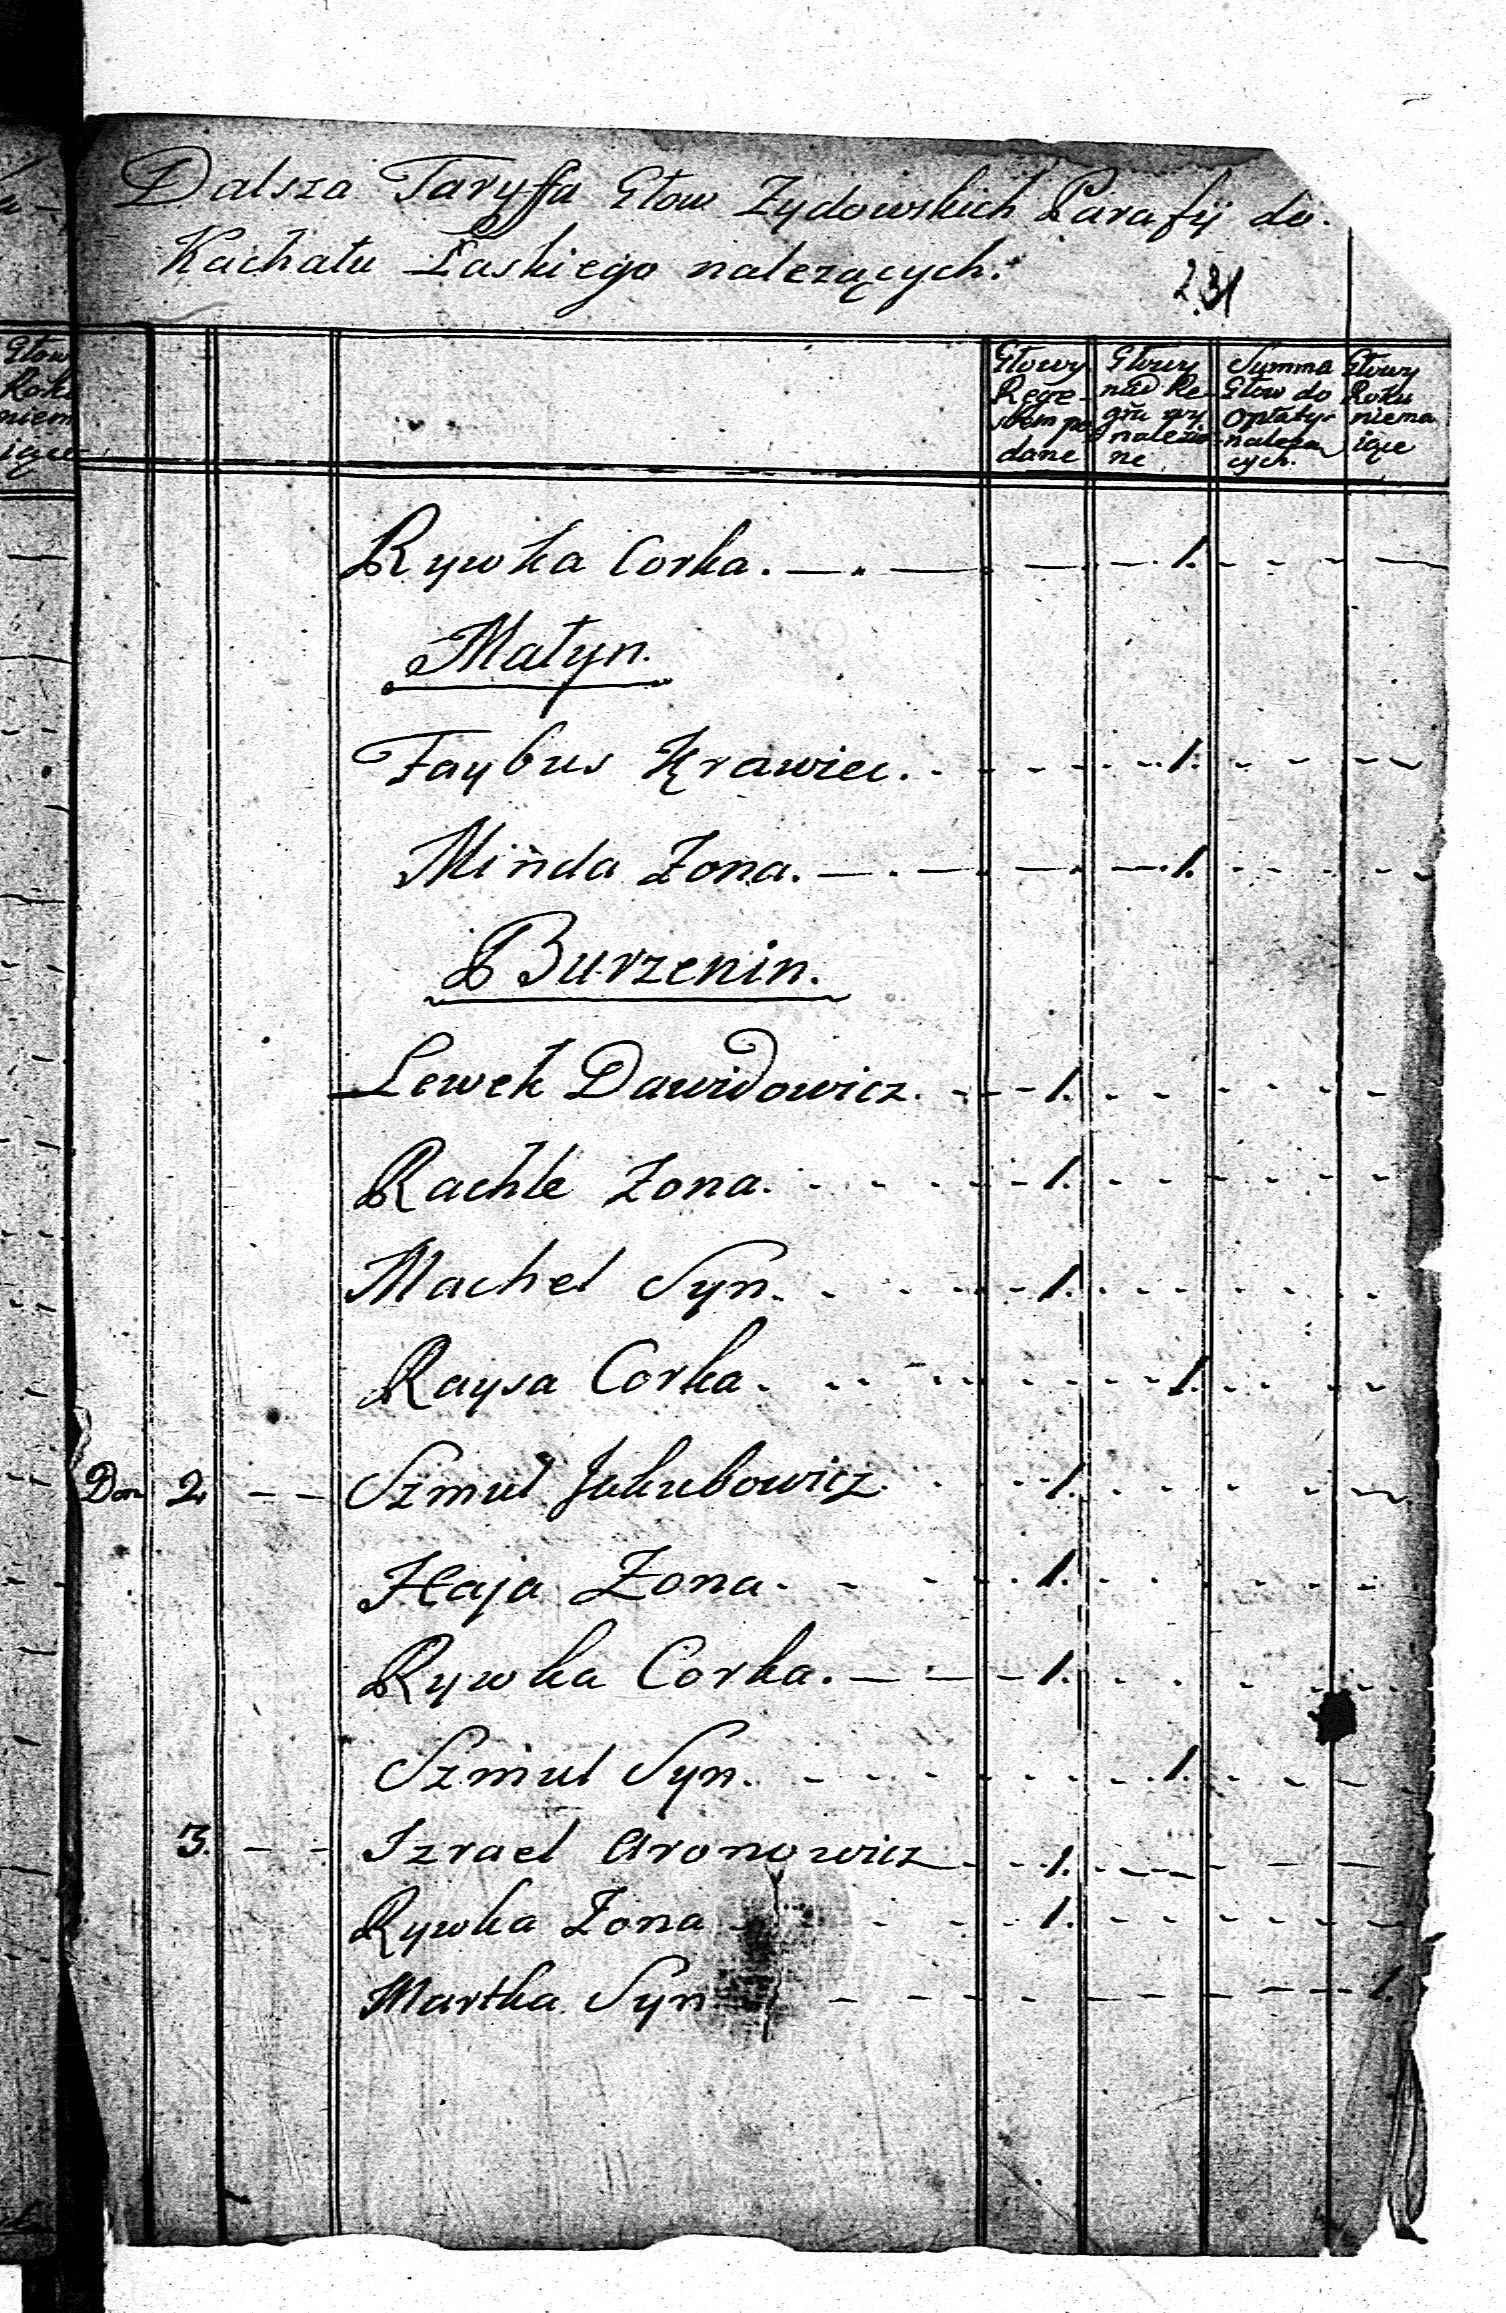 Dalsza Taryffa Głow Zydowskich Parafij do
Kachału Łaskiego nalezących.
231
Głow
Roku
niem
iące
Głowy
Rege-
strem po
dane
Głowy
nad Re-
gstr wy
nalezio
ne
Summa
Głow do
opłaty
naleza
cych.
Głowy
Roku
niema
iące
Rywka Corka. 1.
Małyn.
Faybus Krawiec. 1.
Minda Zona. 1.
Burzenin.
Lewek Dawidowicz. 1.
Rachle Zona. 1.
Machel Syn. 1.
Raysa Corka. 1.
Dom 2. Szmul Jakubowicz. 1.
Haja Zona. 1.
Rywka Corka. 1.
Szmul Syn. 1.
3. Izrael Aronowicz 1.
Rywka Zona 1.
Martka Syn 1.